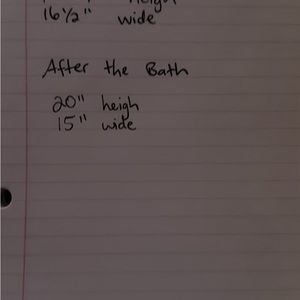 16 1/2" wide
After the Bath
20" heigh
15" wide